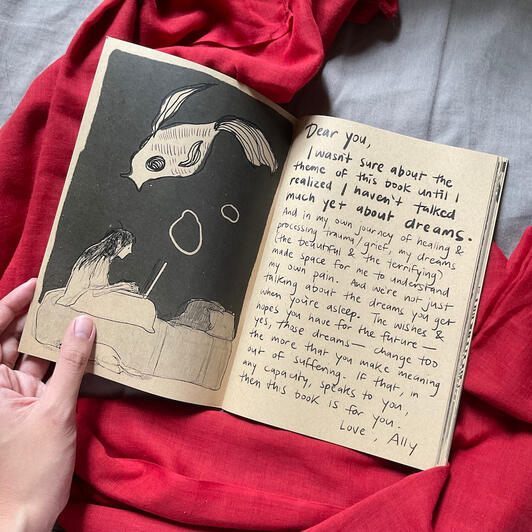 Dear you,
I wasn't sure about the
theme of this book until I
realized I haven't talked
much yet about dreams.
And in my own journey of healing &
processing trauma/grief, my dreams
(the beautiful & the terrifying)
made space for me to understand
my own pain. And we're not just
talking about the dreams you get
when you're asleep. The wishes &
hopes you have for the future —
yes, those dreams — change too
the more that you make meaning
out of suffering. If that, in
any capacity, speaks to you,
then this book is for you.
Love, Ally